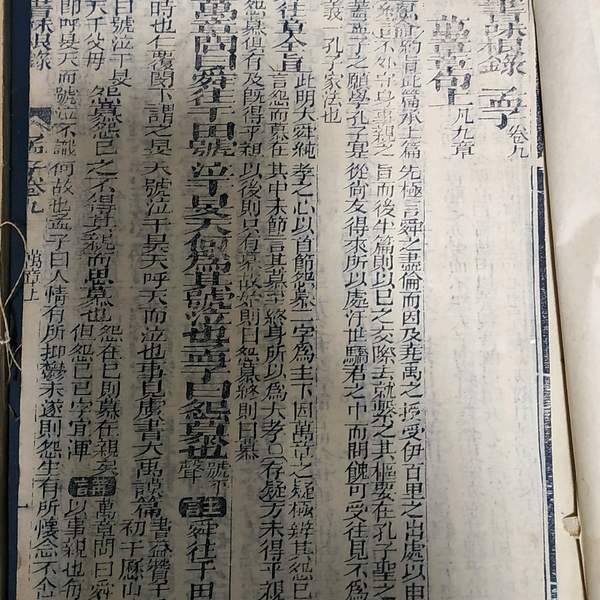 書味根錄 孟子 卷九
萬章章句上 凡九章
約旨此篇承上篇先極言舜之盡倫而因及堯禹之授受伊百里之出處以申
不外守身事親之旨而後半篇則以己之交際去就繫之其樞要在孔子聖之
蓋孟子之願學孔子寔從尚友得來所以處汙世驕君之中而開餽可受往見不為
義一孔子家法也
往章全旨 此明大舜純孝之心以首節怨慕二字為主下因萬章之疑極辨其怨己
言怨而慕在其中末節言其慕至終身所以為大孝○存疑方未得乎親
怨慕俱有及既得乎親以後則只有慕故始則曰怨慕終則曰慕
萬章問曰舜往于田號泣于旻天何為其號泣也孟子曰怨慕也 號平聲 註 舜往于田
時也仁覆閔下謂之旻天號泣于旻天呼天而泣也事見虞書大禹謨篇 書益贊于 初于歷山
曰號泣于旻天于父母 怨慕怨己之不得其親而思慕也 怨在己則慕在親矣 但怨己己字宜渾 講 萬章問曰舜 以事親也每
即呼旻天而號泣不識何故也孟子曰人情有所抑鬱未遂則怨生有所懷念不
書味根錄 孟子卷九 萬章上